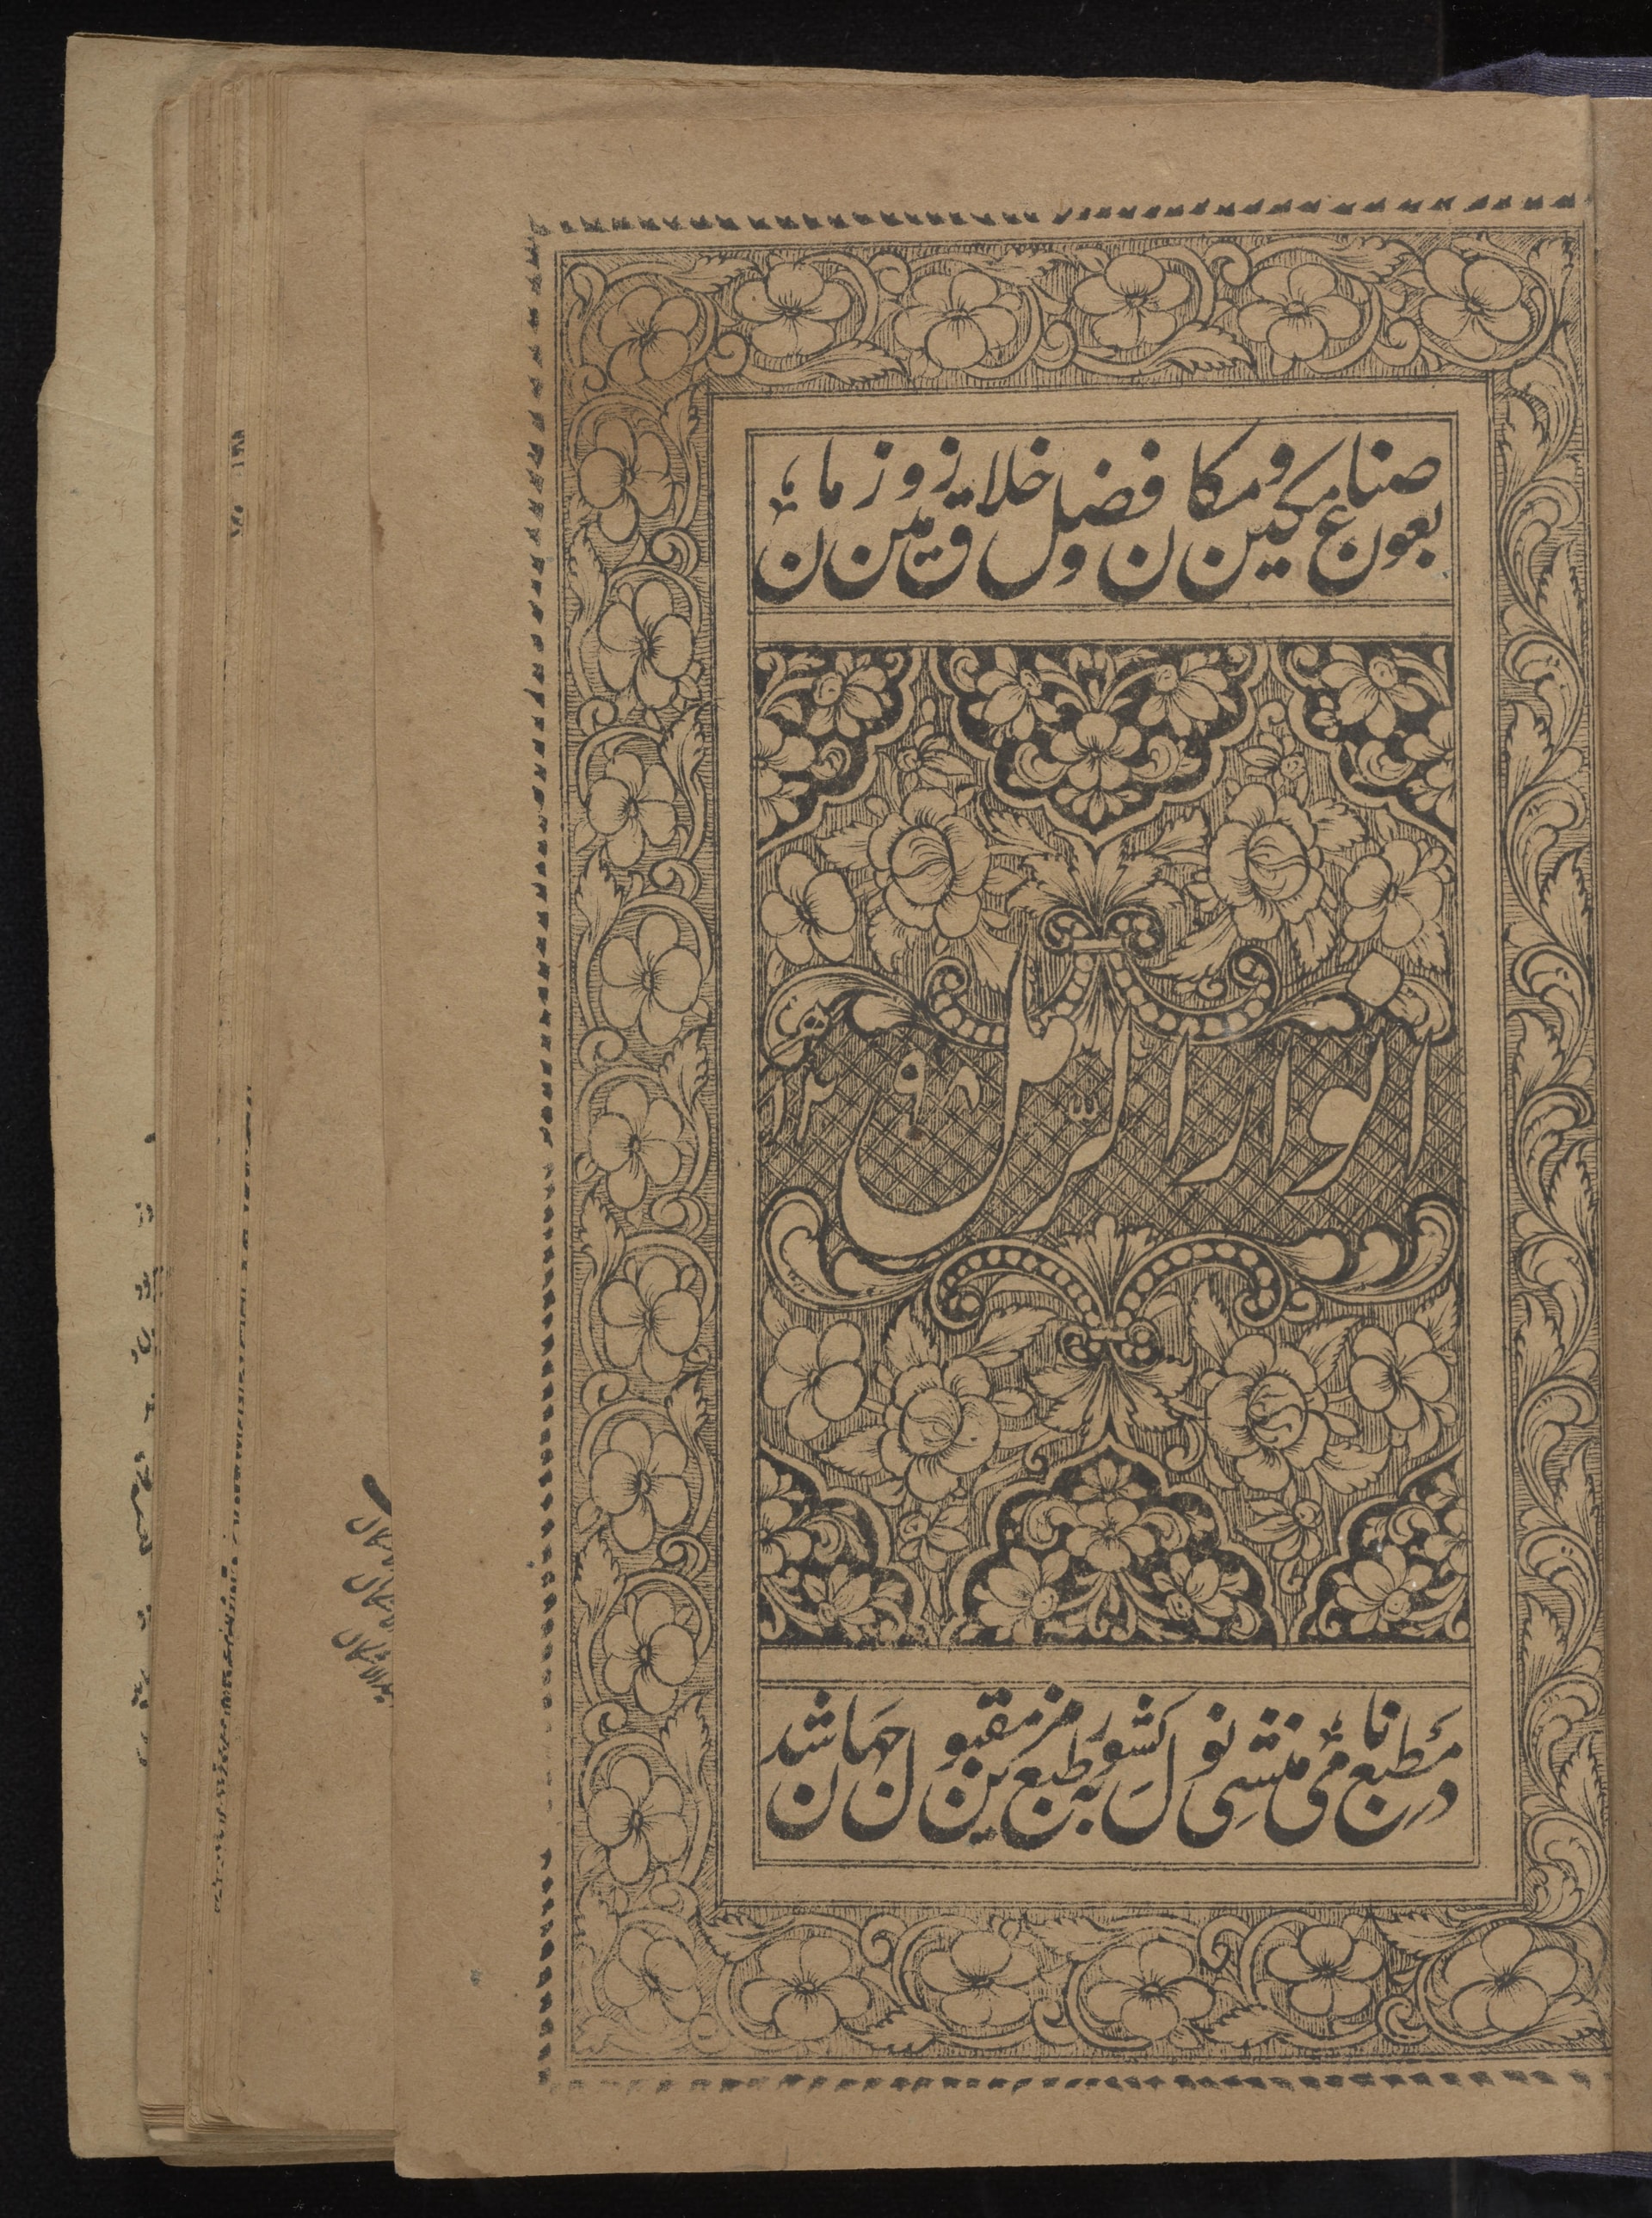 بعون صناع مکین و مکان و فضل خلاق زمین و زمان
انوار الرمل
۱۲۹۸ھ
در مطبع نامی منشی نول کشور به طبع مزین مقبول جهان شد